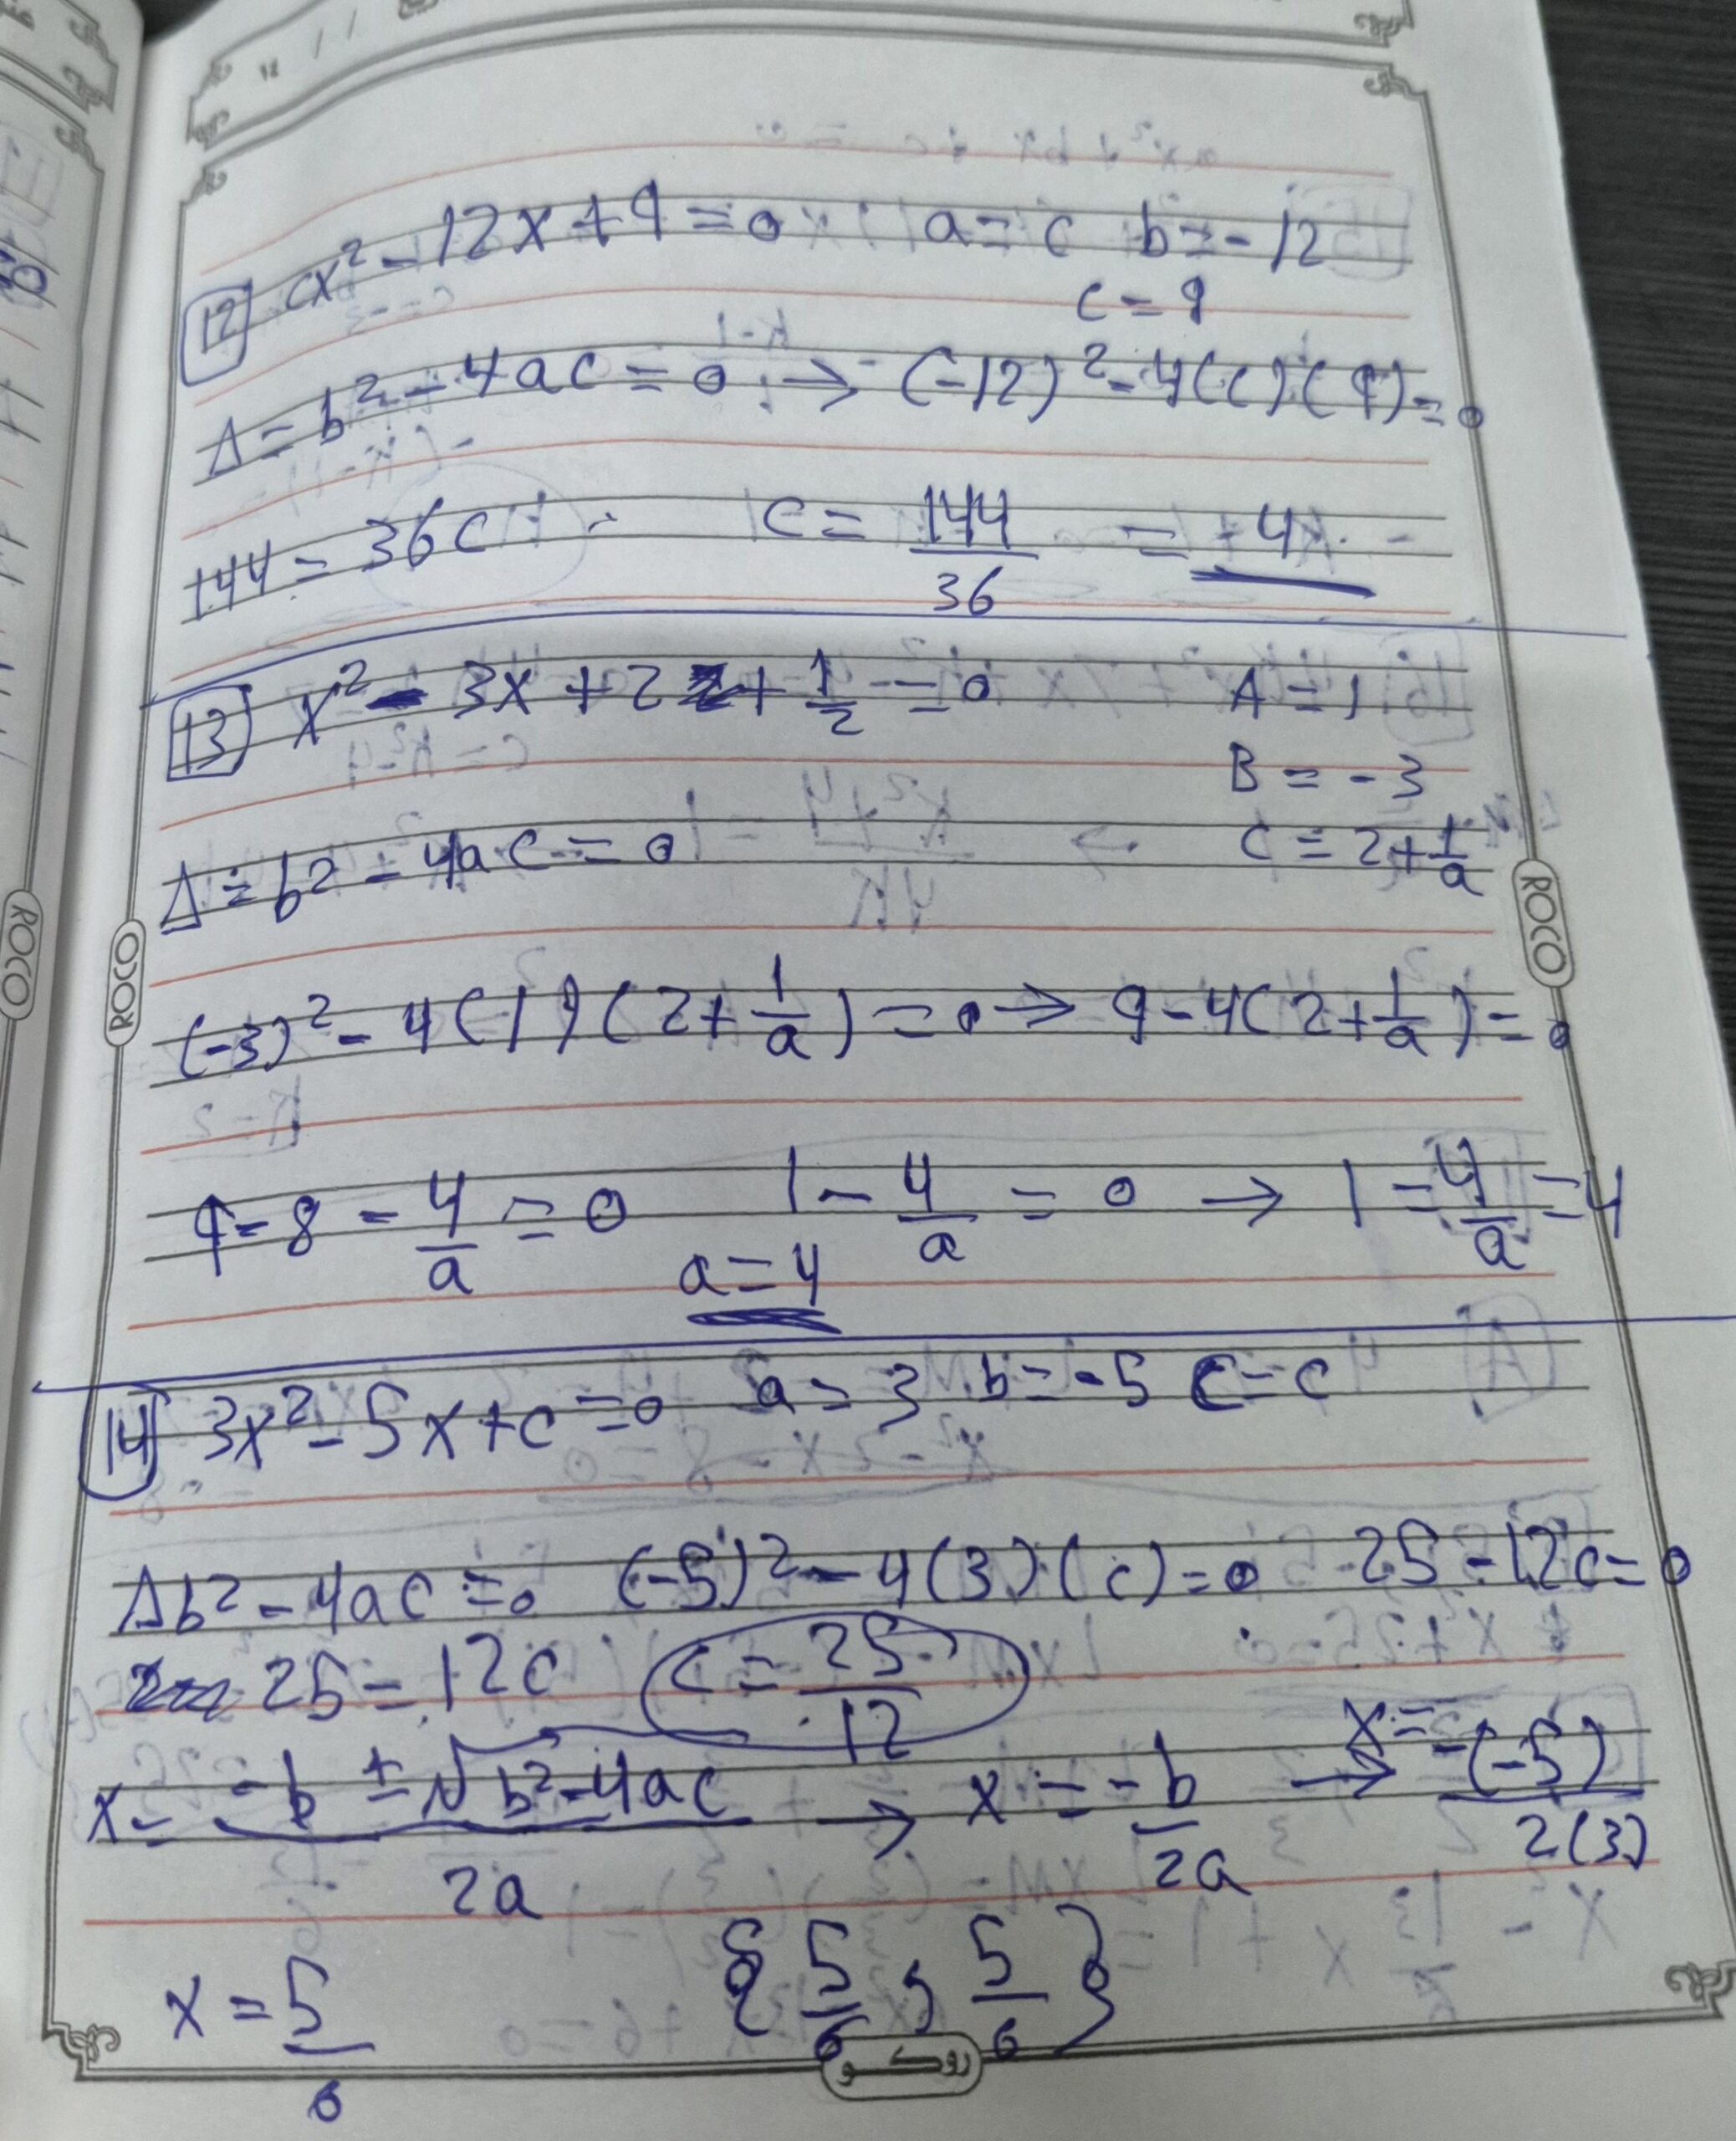 12 cx² - 12x + 9 = 0 a = c b = -12
c = 9
Δ = b² - 4ac = 0 → (-12)² - 4(c)(9) = 0
144 = 36c c = 144/36 = 4
13 x² - 3x + 2 + 1/2 = 0 A = 1
B = -3
Δ = b² - 4ac = 0 C = 2 + 1/a
(-3)² - 4(1)(2 + 1/a) = 0 → 9 - 4(2 + 1/a) = 0
9 - 8 - 4/a = 0 1 - 4/a = 0 → 1 - 4/a = 4
a = 4
14 3x² - 5x + c = 0 a = 3 b = -5 c = c
Δ b² - 4ac = 0 (-5)² - 4(3)(c) = 0 25 - 12c = 0
25 = 12c c = 25/12
x = -b ± √b² - 4ac / 2a → x = -b/2a → x = -(-5)/2(3)
x = 5/6 {5/6 , 5/6}
ROCO
ROCO
ROCO
روكو